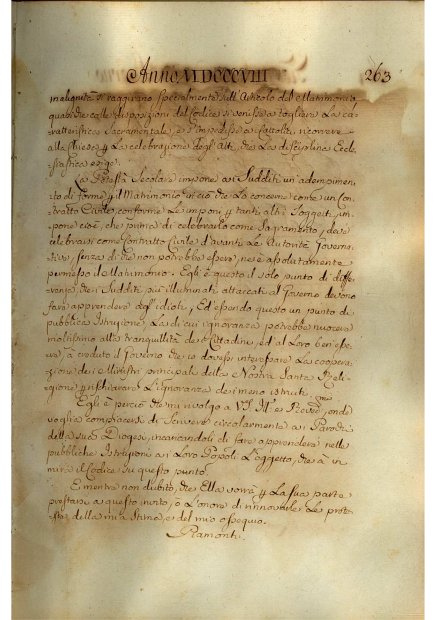 Anno MDCCCVIII 263
malignità si raggirano specialmente sull'Articolo del Matrimonio
quasi che colle disposizioni del Codice si venisse a togliere La ca-
ratteristica Sacramentale, e s'impedisse a' Cattolici, ricorrere
alla Chiesa p La celebrazione degl'Atti, che La disciplina Eccle-
siastica esige.
La Potestà Secolare impone a' suoi Sudditi un'adempimen-
to di forme p il Matrimonio in ciò che Lo concerne come un Con-
tratto Civile, conforme Le impone p tanti altri Soggetti, im-
pone cioè, che prima di celebrarlo come Sagramento, deve
celebrarsi come Contratto Civile d'avanti Le Autorità Governa-
tive, senza di che non potrebbe essere, nè è assolutamente
permesso del Matrimonio. Egli è questo il solo punto di diffe-
renza, che i Sudditi più illuminati attaccati al Governo devono
fare apprendere agl'idioti, Ed essendo questo un punto di
pubblica Istruzione, La di cui ignoranza potrebbe nuocere
moltissimo alla tranquillità de' Cittadini, ed al Loro ben'esse-
re, à creduto il Governo che io dovessi interessare La coopera-
zione dei Ministri principali della Nostra Santa Reli-
gione p rischiarare L'ignoranza dei meno istruiti.
Egli è perciò che mi rivolgo a V.S. Ill.e Reved., onde
voglia compiacersi di scrivere circolarmente ai Parochi
della sua Diogesi, incaricandoli di fare apprendere nelle
pubbliche Istruzioni ai Loro Popoli L'oggetto, che à in
mira il Codice su questo punto.
E mentre non dubito, che Ella vorrà p La sua parte
prestarsi a questo invito, ò L'onore di rinnovarle Le prote-
ste della mia Stima, e del mio ossequio.
Piamonti.